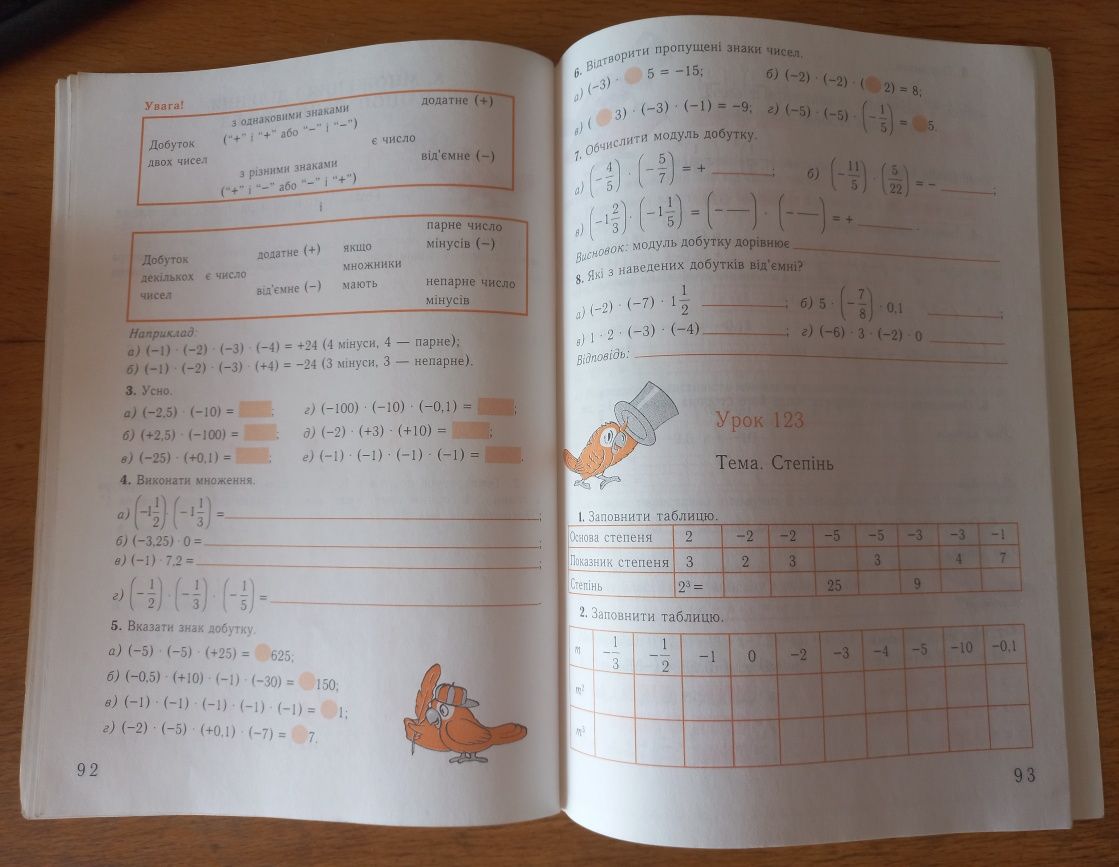 Увага!
Добуток двох чисел
з однаковими знаками
("+" і "+" або "−" і "−")
з різними знаками
("+" і "−" або "−" і "+")
є число
додатне (+)
від'ємне (−)
і
Добуток декількох чисел
є число
додатне (+)
від'ємне (−)
якщо множники мають
парне число мінусів (−)
непарне число мінусів
Наприклад:
а) (−1) · (−2) · (−3) · (−4) = +24 (4 мінуси, 4 — парне);
б) (−1) · (−2) · (−3) · (+4) = −24 (3 мінуси, 3 — непарне).
3. Усно.
а) (−2,5) · (−10) = ; г) (−100) · (−10) · (−0,1) = ;
б) (+2,5) · (−100) = ; д) (−2) · (+3) · (+10) = ;
в) (−25) · (+0,1) = ; е) (−1) · (−1) · (−1) · (−1) = .
4. Виконати множення.
а) (−1 1/2) · (−1 1/3) = ;
б) (−3,25) · 0 = ;
в) (−1) · 7,2 = ;
г) (−1/2) · (−1/3) · (−1/5) = .
5. Вказати знак добутку.
а) (−5) · (−5) · (+25) = 625;
б) (−0,5) · (+10) · (−1) · (−30) = 150;
в) (−1) · (−1) · (−1) · (−1) · (−1) = 1;
г) (−2) · (−5) · (+0,1) · (−7) = 7.
92
6. Відтворити пропущені знаки чисел.
а) (−3) · 5 = −15; б) (−2) · (−2) · ( 2) = 8;
в) ( 3) · (−3) · (−1) = −9; г) (−5) · (−5) · (−1/5) = 5.
7. Обчислити модуль добутку.
а) (−4/5) · (−5/7) = + ; б) (−11/5) · (5/22) = − ;
в) (−1 2/3) · (−1 1/5) = (− —) · (− —) = + .
Висновок: модуль добутку дорівнює
8. Які з наведених добутків від'ємні?
а) (−2) · (−7) · 1 1/2 ; б) 5 · (−7/8) · 0,1 ;
в) 1 · 2 · (−3) · (−4) ; г) (−6) · 3 · (−2) · 0
Відповідь:
Урок 123
Тема. Степінь
1. Заповнити таблицю.
Основа степеня 2 −2 −2 −5 −5 −3 −3 −1
Показник степеня 3 2 3 3 4 7
Степінь 2³ = 25 9
2. Заповнити таблицю.
m −1/3 −1/2 −1 0 −2 −3 −4 −5 −10 −0,1
m²
m³
93